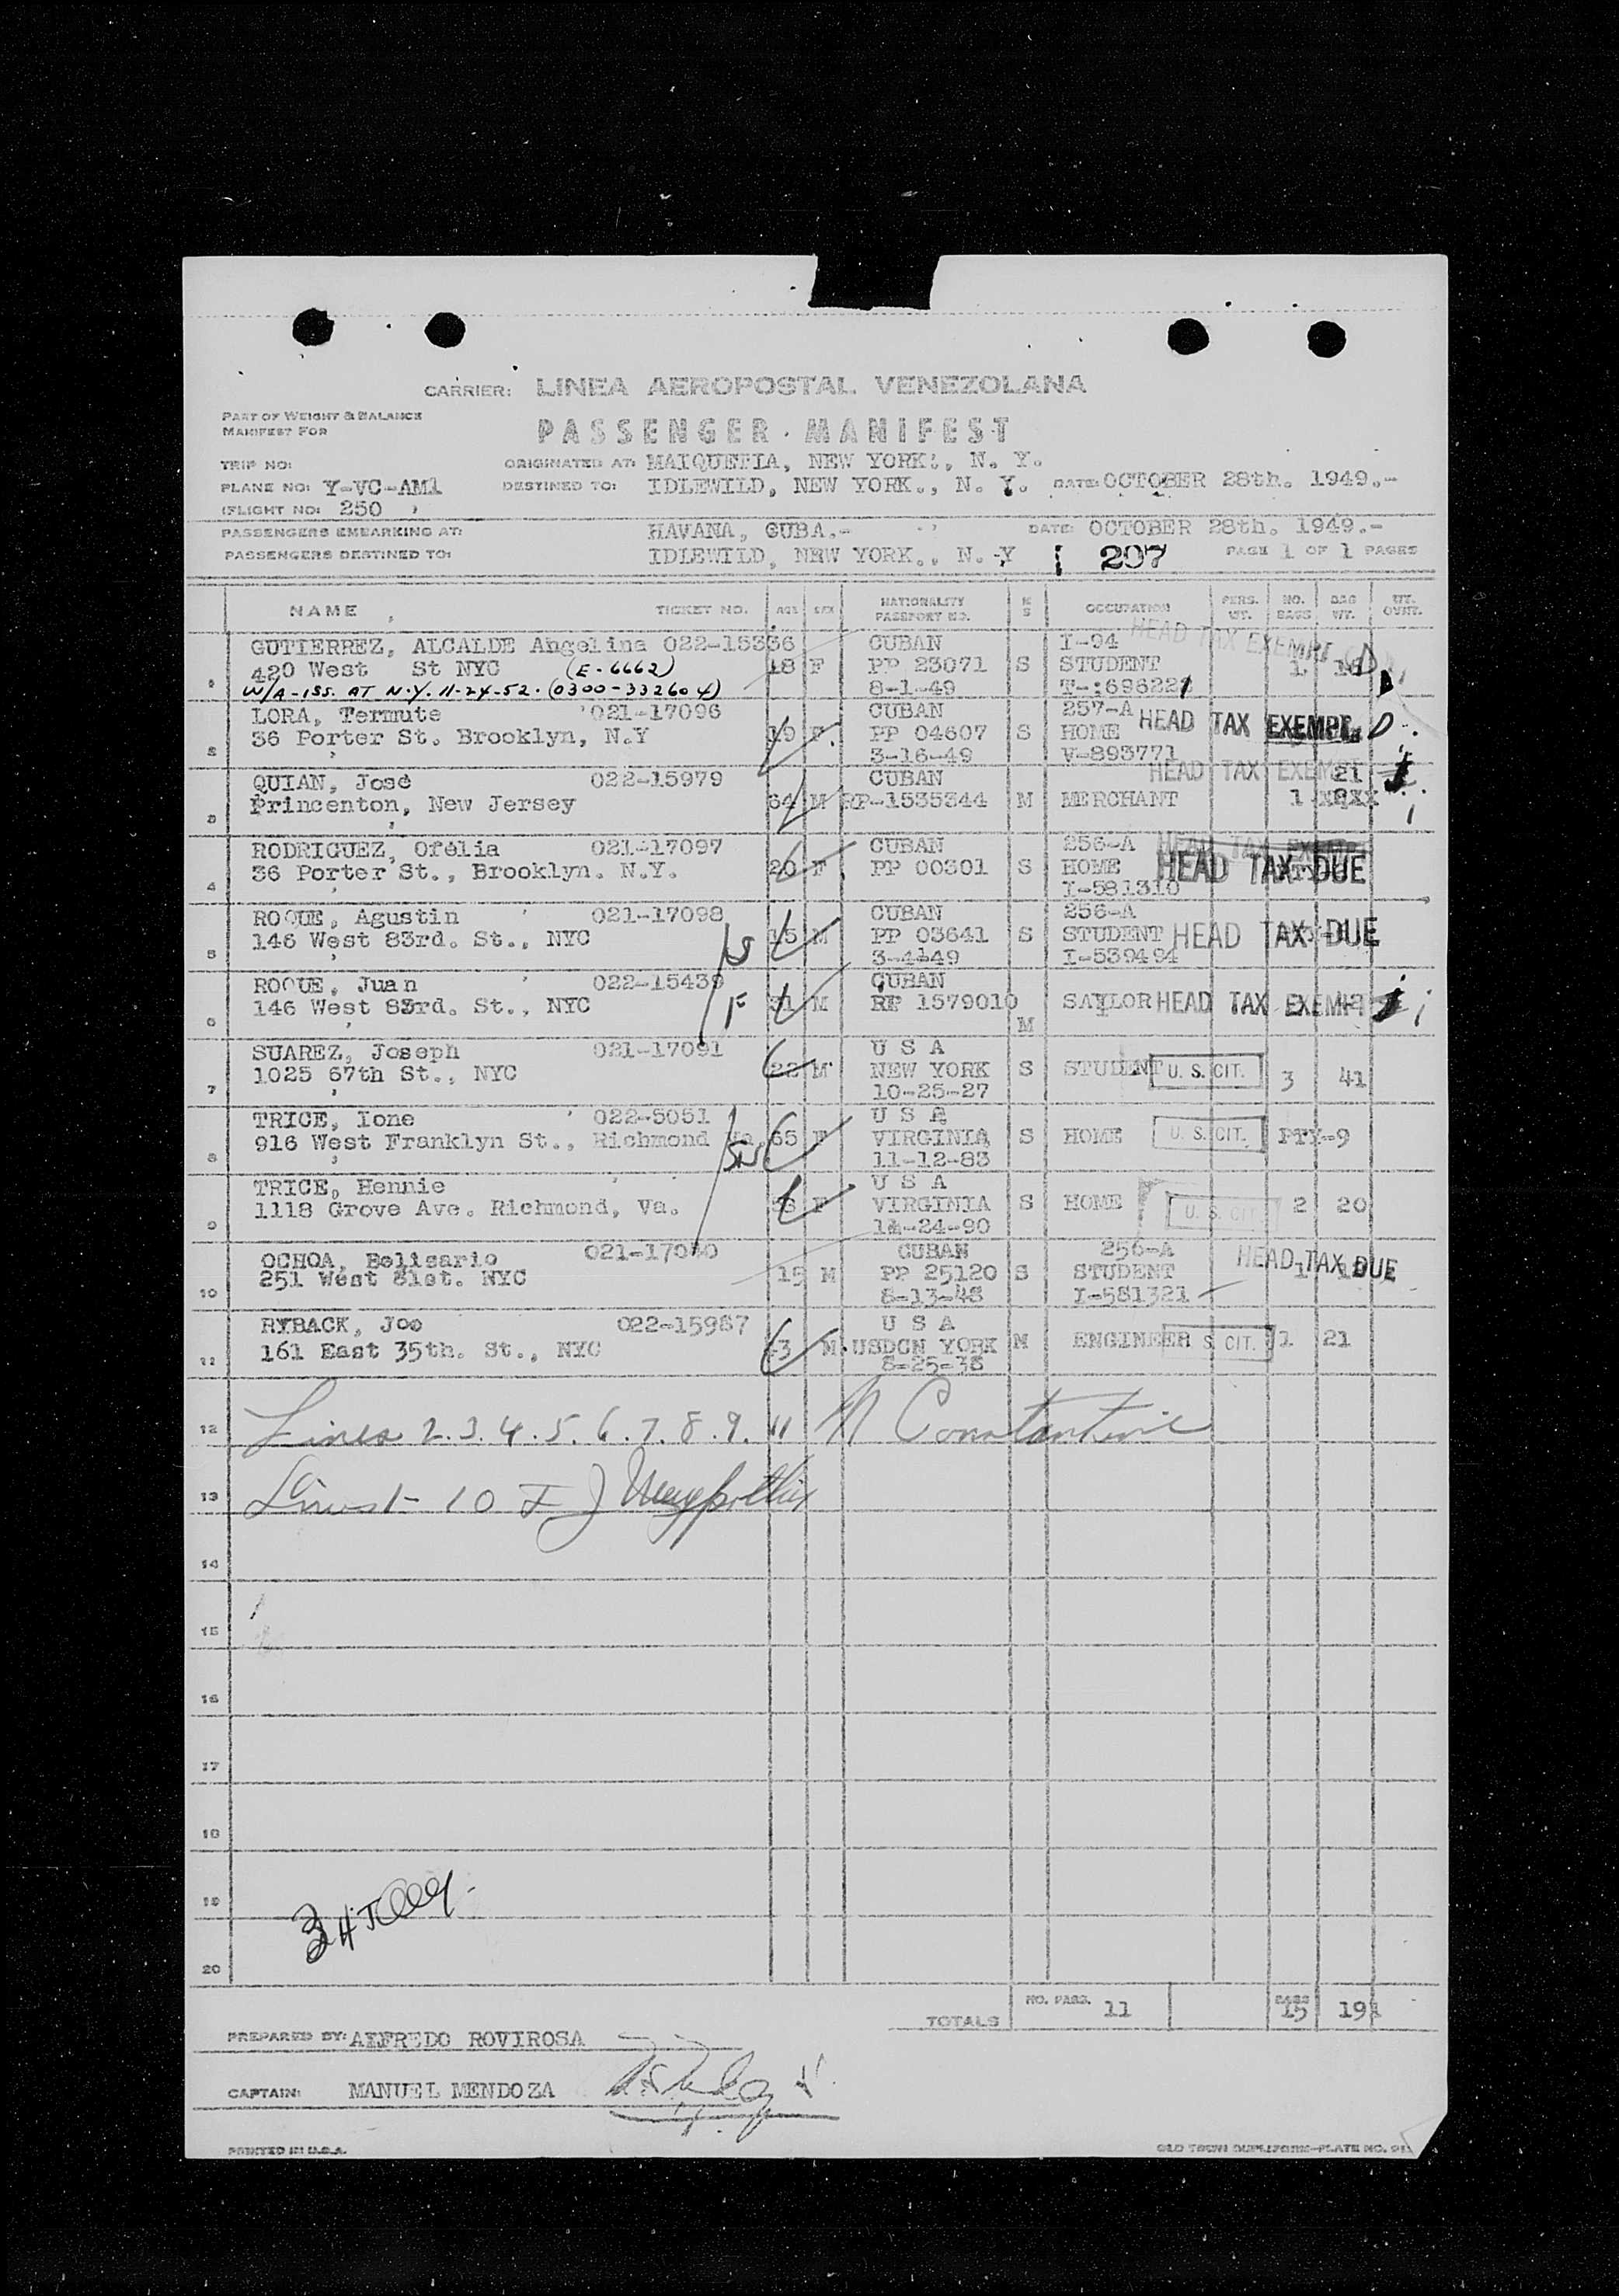 CARRIER: LINEA AEROPOSTAL VENEZOLANA
PART OF WEIGHT & BALANCE
MANIFEST FOR
PASSENGER MANIFEST
TRIP NO: ORIGINATED AT: MAIQUETIA, NEW YORK., N. Y.
PLANE NO: Y-VC-AM1 DESTINED TO: IDLEWILD, NEW YORK., N. Y. DATE: OCTOBER 28th. 1949.-
FLIGHT NO: 250
PASSENGERS EMBARKING AT: HAVANA, CUBA.- DATE: OCTOBER 28th. 1949.-
PASSENGERS DESTINED TO: IDLEWILD, NEW YORK., N. Y 297 PAGE 1 OF 1 PAGES
NAME TICKET NO. AGE SEX NATIONALITY PASSPORT NO. M S OCCUPATION PERS. WT. NO. BAGS BAG WT. WT. OVWT.
GUTIERREZ, ALCALDE Angelina 022-15336 CUBAN I-94 HEAD TAX EXEMPT
420 West St NYC (E-6662) 18 F PP 23071 S STUDENT 1
W/A-ISS. AT N.Y. 11-24-52. (0300-332604) 8-1-49
LORA, Termute 021-17096 CUBAN 257-A HEAD TAX EXEMPT
2 36 Porter St. Brooklyn, N.Y 19 F PP 04607 S HOME
3-16-49 V-893771
QUIAN, José 022-15979 CUBAN HEAD TAX EXEMPT 21
3 Princenton, New Jersey 64 M RP-1535344 M MERCHANT 1
RODRIGUEZ, Ofelia 021-17097 CUBAN 256-A HEAD TAX EXEMPT
4 36 Porter St., Brooklyn. N.Y. 20 F PP 00301 S HOME HEAD TAX DUE
I-581310
ROQUE, Agustin 021-17098 CUBAN 256-A
5 146 West 83rd. St., NYC 15 M PP 03641 S STUDENT HEAD TAX DUE
I-539494
ROQUE, Juan 022-15439 CUBAN
6 146 West 83rd. St., NYC 31 M RP 1579010 M SAYLOR HEAD TAX EXEMPT
SUAREZ, Joseph 021-17091 U S A
7 1025 67th St., NYC 22 M NEW YORK S STUDENT U. S. CIT. 3 41
10-25-27
TRICE, Ione 022-5051 U S A
8 916 West Franklyn St., Richmond Va. 65 F VIRGINIA S HOME U. S. CIT. PTY-9
11-12-83
TRICE, Hennie U S A
9 1118 Grove Ave. Richmond, Va. F VIRGINIA S HOME U. S. CIT. 2 20
OCHOA, Belisario CUBAN 256-A HEAD TAX DUE
10 251 West 81st. NYC 15 M PP 25120 S STUDENT 1
8-13-48 I-581321
RYBACK, Joe 022-15987 U S A
11 161 East 35th. St., NYC M USDCN YORK M ENGINEER S. CIT. 1 21
8-25-38
12 Lines 2.3.4.5.6.7.8.9.11 N Constantine
13
14
15
16
17
18
19
20
TOTALS NO. PASS. 11 BAGS 15
PREPARED BY: ALFREDO ROVIROSA
CAPTAIN: MANUEL MENDOZA
PRINTED IN U.S.A. OLD TOWN DUPLIFORM-PLATE NO.